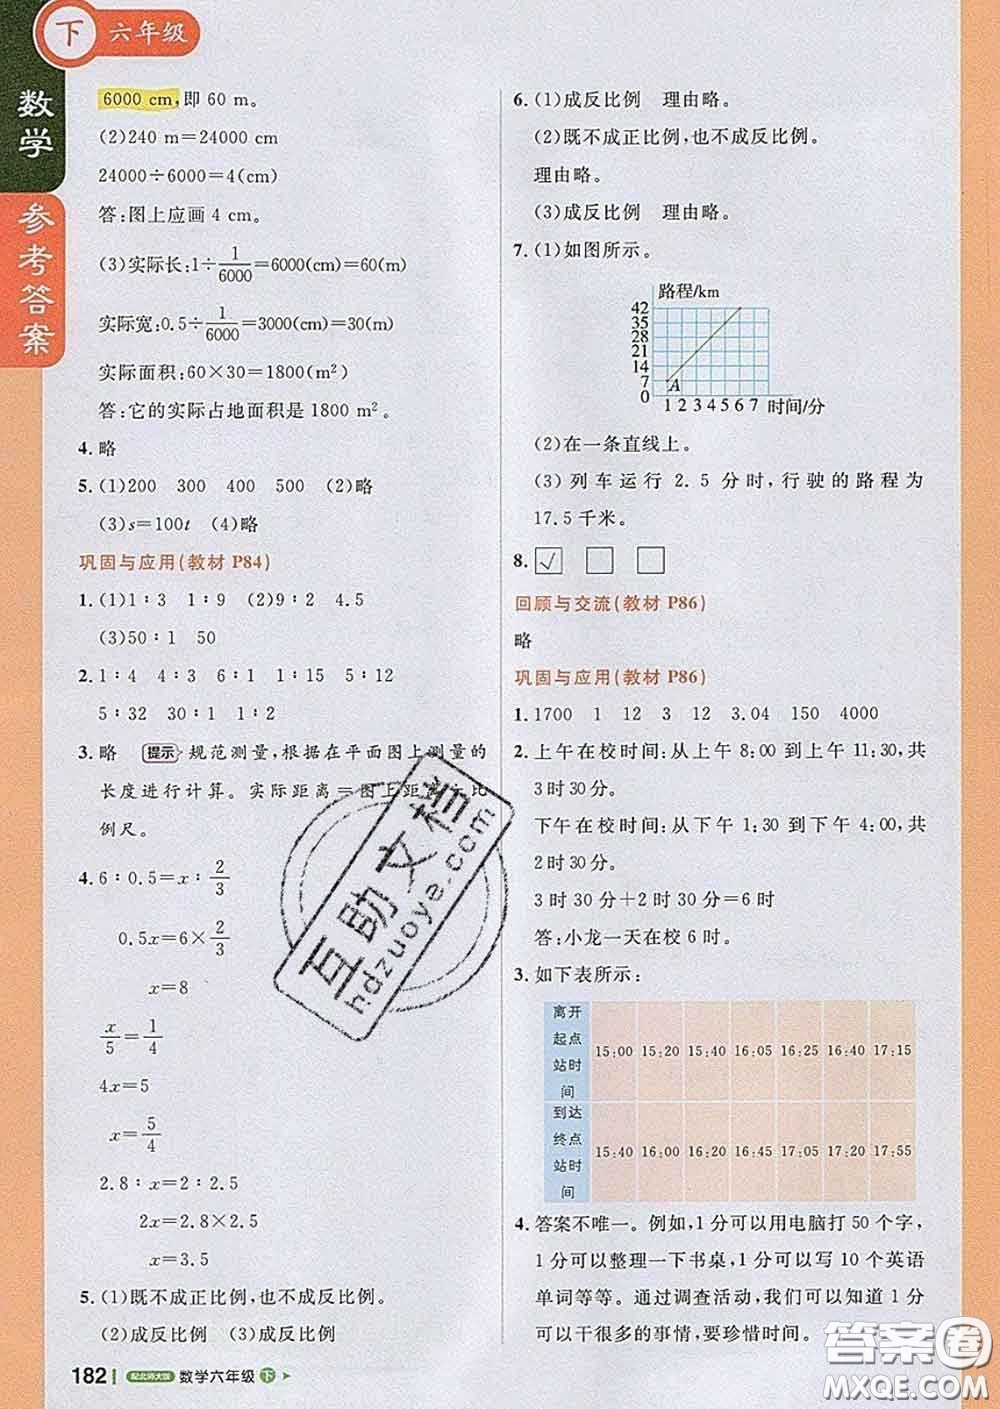 下 六年级
数学
参考答案
6000 cm,即 60 m。
(2)240 m=24000 cm
24000÷6000=4(cm)
答:图上应画 4 cm。
(3)实际长:1÷1/6000=6000(cm)=60(m)
实际宽:0.5÷1/6000=3000(cm)=30(m)
实际面积:60×30=1800(m²)
答:它的实际占地面积是 1800 m²。
4. 略
5. (1)200 300 400 500 (2)略
(3)s=100t (4)略
巩固与应用(教材 P84)
1. (1)1∶3 1∶9 (2)9∶2 4.5
(3)50∶1 50
2. 1∶4 4∶3 6∶1 1∶15 5∶12
5∶32 30∶1 1∶2
3. 略 提示 规范测量,根据在平面图上测量的
长度进行计算。实际距离=图上距离 比
例尺。
4. 6∶0.5=x∶2/3
0.5x=6×2/3
x=8
x/5=1/4
4x=5
x=5/4
2.8∶x=2∶2.5
2x=2.8×2.5
x=3.5
5. (1)既不成正比例,也不成反比例。
(2)成反比例 (3)成反比例
182 配北师大版 数学六年级 下
6. (1)成反比例 理由略。
(2)既不成正比例,也不成反比例。
理由略。
(3)成反比例 理由略。
7. (1)如图所示。
路程/km
42
35
28
21
14
7
0
A
1 2 3 4 5 6 7 时间/分
(2)在一条直线上。
(3)列车运行 2.5 分时,行驶的路程为
17.5 千米。
8. √
回顾与交流(教材 P86)
略
巩固与应用(教材 P86)
1. 1700 1 12 3 12 3.04 150 4000
2. 上午在校时间:从上午 8:00 到上午 11:30,共
3 时 30 分。
下午在校时间:从下午 1:30 到下午 4:00,共
2 时 30 分。
3 时 30 分+2 时 30 分=6 时
答:小龙一天在校 6 时。
3. 如下表所示:
离开起点站时间 15:00 15:20 15:40 16:05 16:25 16:40 17:15
到达终点站时间 15:40 16:00 16:20 16:45 17:05 17:20 17:55
4. 答案不唯一。例如,1 分可以用电脑打 50 个字,
1 分可以整理一下书桌,1 分可以写 10 个英语
单词等等。通过调查活动,我们可以知道 1 分
可以干很多的事情,要珍惜时间。
互助文档
hdzuoye.com
答案圈
MXQE.COM